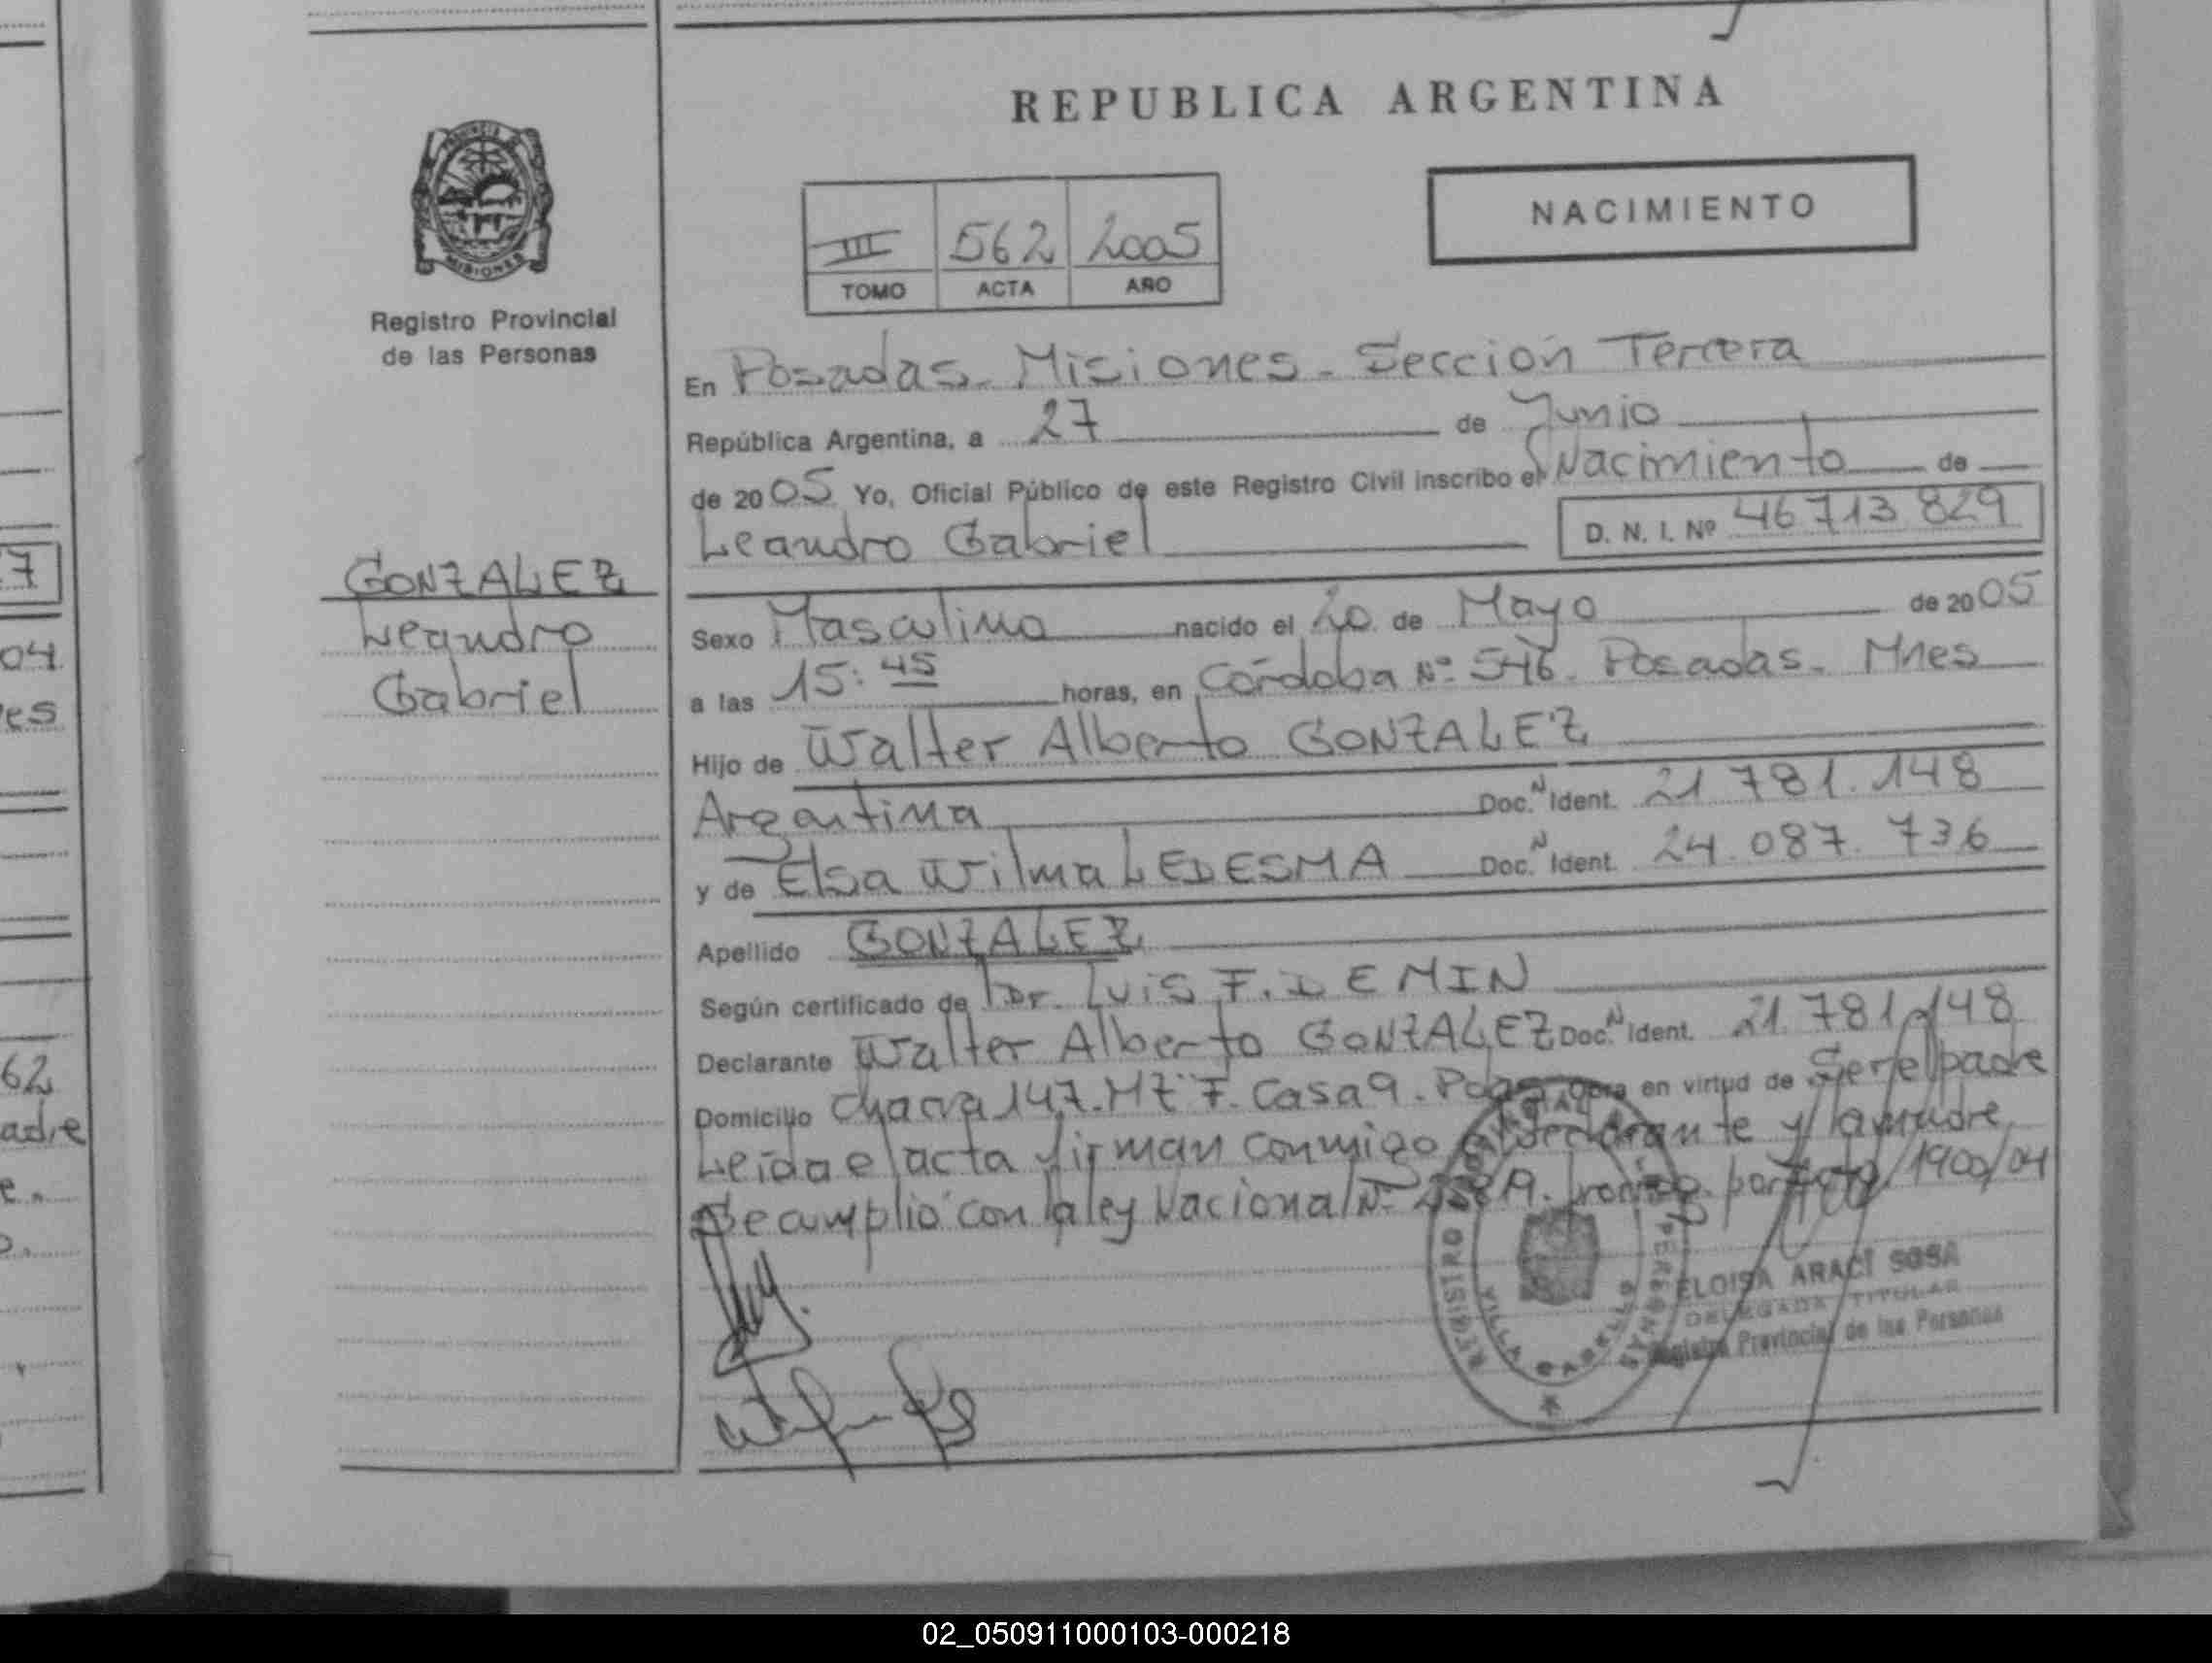 REPUBLICA ARGENTINA
NACIMIENTO
III 562 2005
TOMO ACTA AÑO
PROVINCIA DE
MISIONES
Registro Provincial
de las Personas
GONZALEZ
Leandro
Gabriel
En Posadas - Misiones - Sección Tercera
República Argentina, a 27 de Junio
de 2005 Yo, Oficial Público de este Registro Civil inscribo el Nacimiento de
Leandro Gabriel D. N. I. Nº 46713829
Sexo Masculino nacido el 20 de Mayo de 2005
a las 15:45 horas, en Córdoba Nº 546. Posadas - Mnes
Hijo de Walter Alberto GONZALEZ
Argentina Doc. N Ident. 21 781.148
y de Elsa Wilma LEDESMA Doc. N Ident. 24.087.736
Apellido GONZALEZ
Según certificado de Dr. Luis F. DEMIN
Declarante Walter Alberto GONZALEZ Doc. N Ident. 21.781.148
Domicilio Chacra 147. Mz 7. Casa 9. Pdas Obra en virtud de Ser el padre
Leída el acta firman conmigo el declarante y la madre
Se cumplió con la ley Nacional Nº 1900/04
REGISTRO PERSONAS
VILLA CABELLO
ELOISA ARACI SOSA
DELEGADA TITULAR
Registro Provincial de las Personas
7
04
es
62
adre
02_050911000103-000218